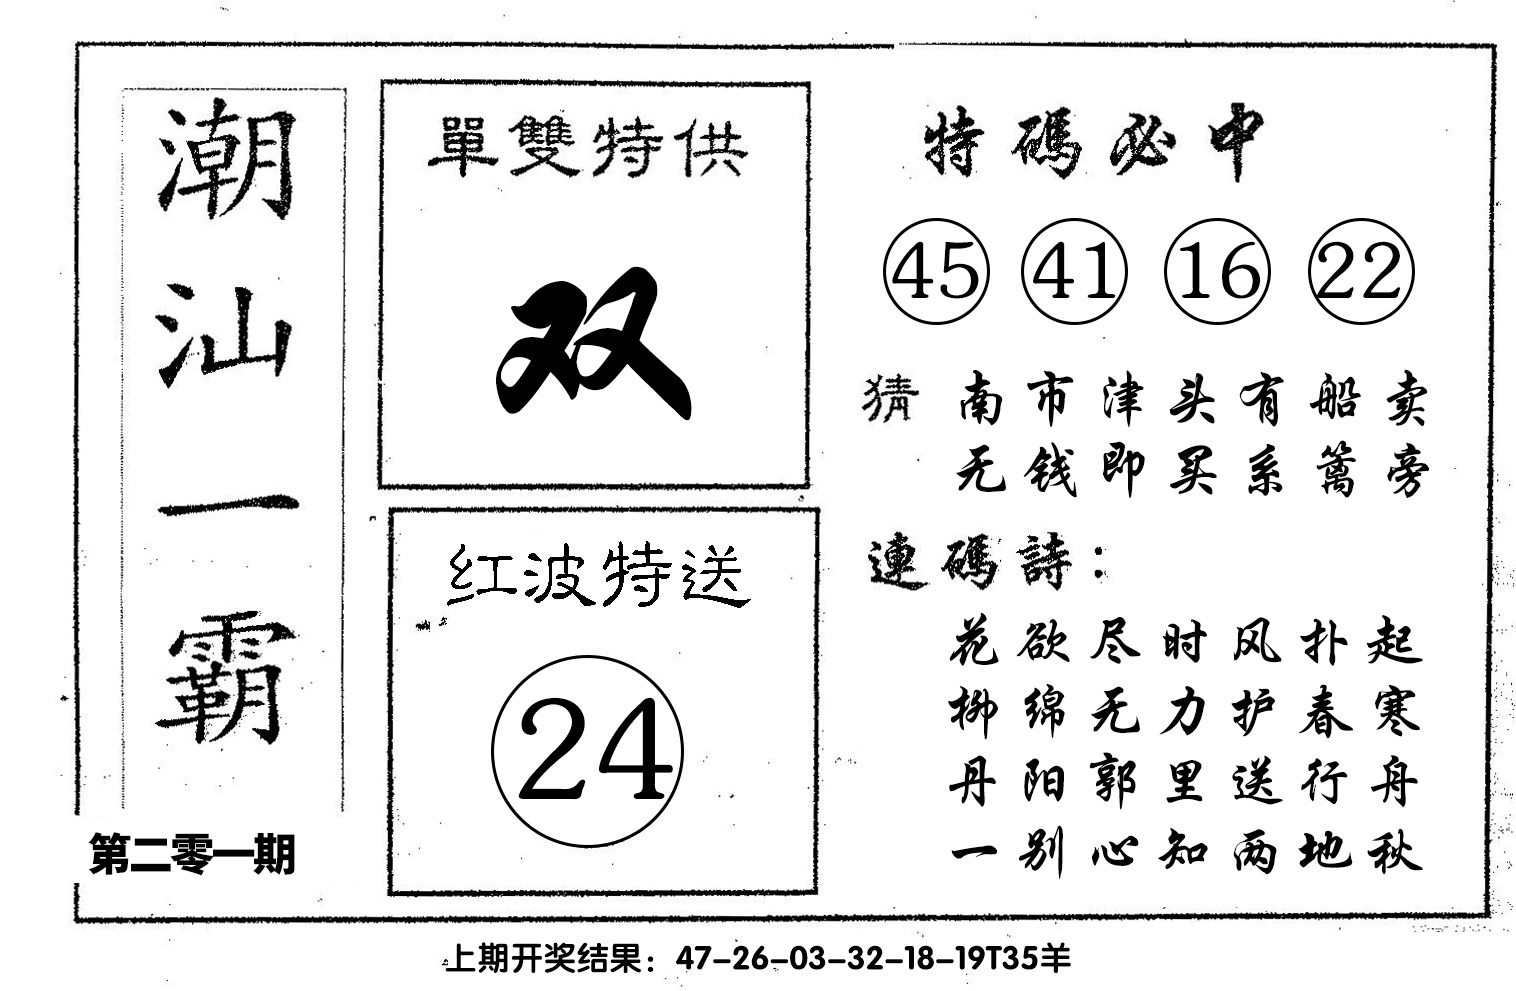 潮汕一霸
第二零一期
單雙特供
双
红波特送
24
特碼必中
45 41 16 22
猜 南市津头有船卖
无钱即买系篱旁
連碼詩：
花欲尽时风扑起
柳绵无力护春寒
丹阳郭里送行舟
一别心知两地秋
上期开奖结果：47-26-03-32-18-19T35羊